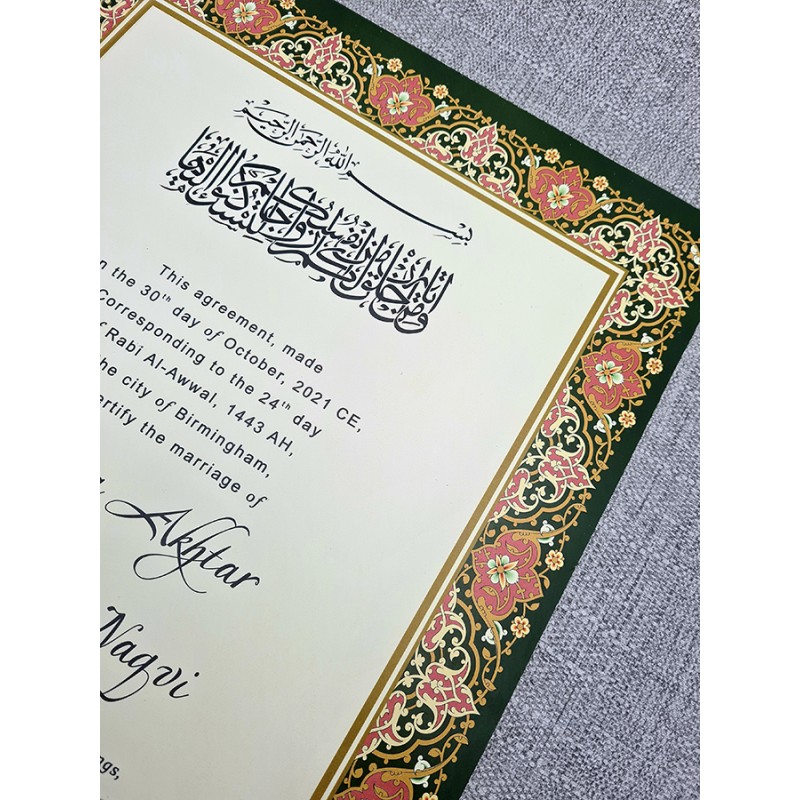 بسم الله الرحمن الرحيم
ومن آياته أن خلق لكم من أنفسكم أزواجا لتسكنوا إليها
This agreement, made
n the 30th day of October, 2021 CE,
Corresponding to the 24th day
f Rabi Al-Awwal, 1443 AH,
he city of Birmingham,
ertify the marriage of
Akhtar
Naqvi
ngs,